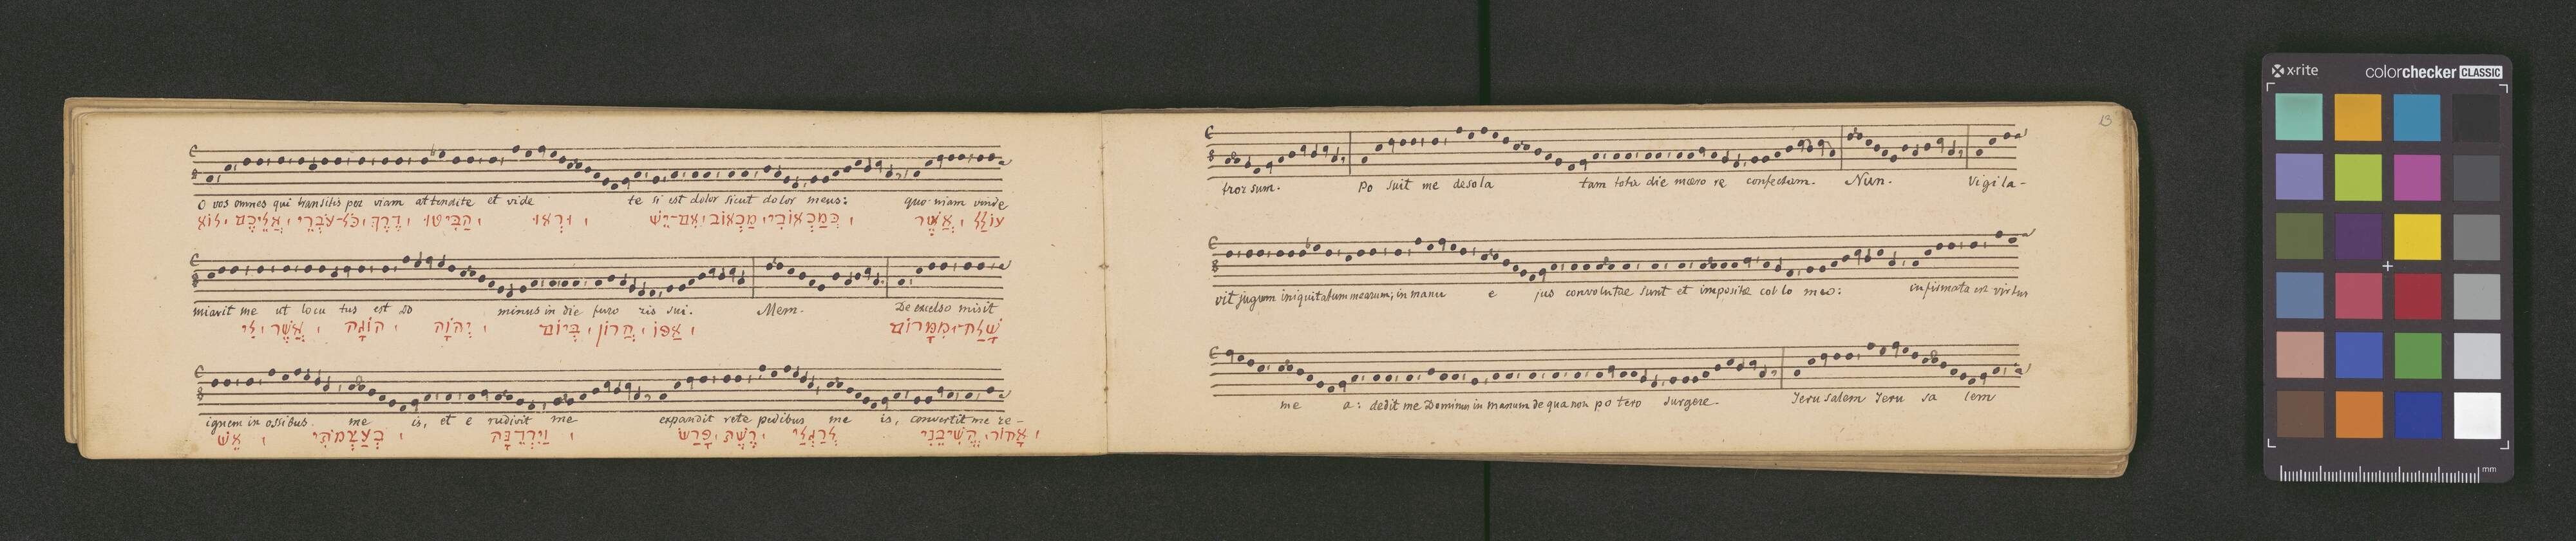 O vos omnes qui transitis per viam attendite et vide te si est dolor sicut dolor meus: quoniam vinde
לוֹא אֲלֵיכֶם כָּל־עֹבְרֵי דֶרֶךְ הַבִּיטוּ וּרְאוּ אִם־יֵשׁ מַכְאוֹב כְּמַכְאוֹבִי אֲשֶׁר עוֹלַל
miavit me ut locu tus est Do minus in die furo ris sui. Mem. De excelso misit
לִי אֲשֶׁר הוֹגָה יְהוָֹה בְּיוֹם חֲרוֹן אַפּוֹ מִמָּרוֹם שָׁלַח־
ignem in ossibus me is, et e rudivit me expandit rete pedibus me is, convertit me re-
אֵשׁ בְּעַצְמֹתַי וַיִּרְדֶּנָּה פָּרַשׂ רֶשֶׁת לְרַגְלַי הֱשִׁיבַנִי אָחוֹר
13
trorsum. Po suit me desola tam tota die mœro re confectam. Nun. Vigila-
vit jugum iniquitatum mearum; in manu e jus convolutae sunt et impositæ col lo meo: infirmata est virtus
me a: dedit me Dominus in manum de qua non po tero surgere. Jeru salem Jeru sa lem
x-rite
colorchecker CLASSIC
mm